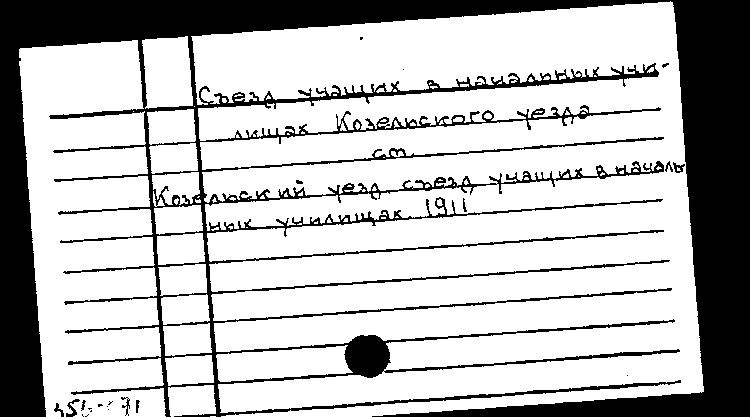 Съезд учащих в начальных учи-
лищах Козельского уезда
см.
Козельский уезд. съезд учащих в началь
ных училищах. 1911